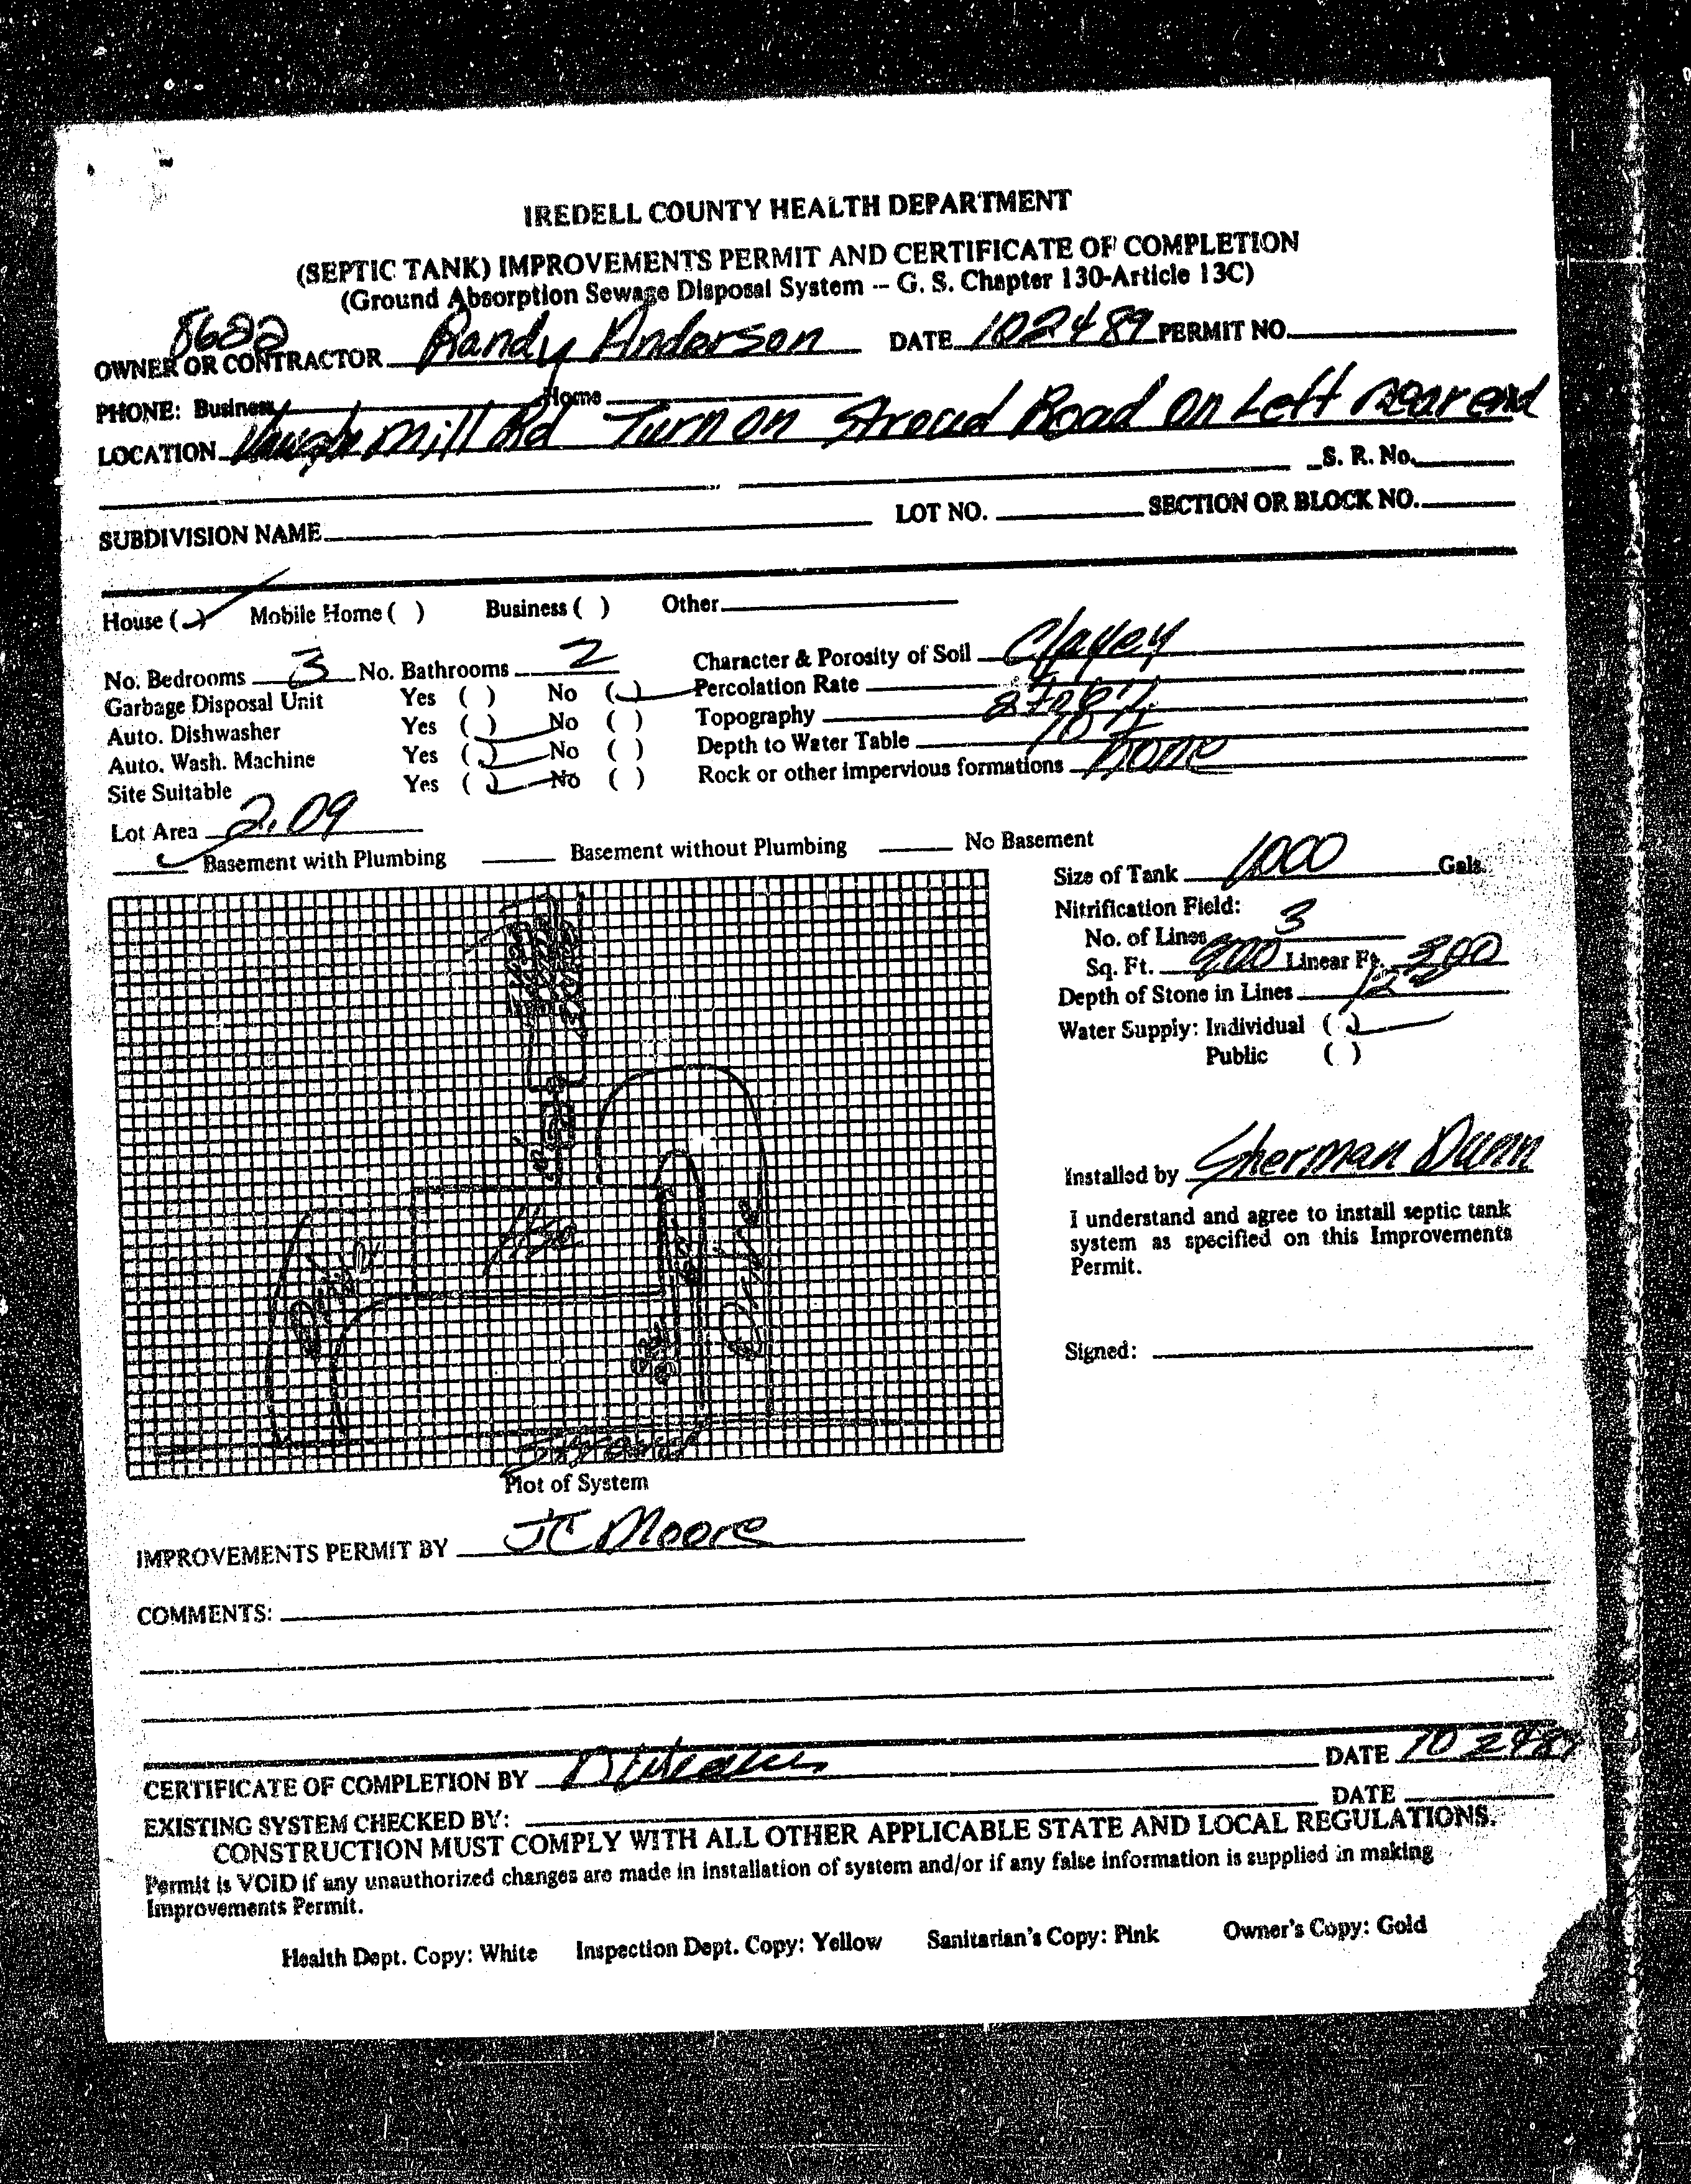 IREDELL COUNTY HEALTH DEPARTMENT
(SEPTIC TANK) IMPROVEMENTS PERMIT AND CERTIFICATE OF COMPLETION
(Ground Absorption Sewage Disposal System -- G. S. Chapter 130-Article 13C)
8622
OWNER OR CONTRACTOR Randy Anderson DATE 102489 PERMIT NO.
PHONE: Business Home
LOCATION mill Rd Turn on Stroud Road on Left near end
S. R. No.
SUBDIVISION NAME LOT NO. SECTION OR BLOCK NO.
House ( ) Mobile Home ( ) Business ( ) Other
No. Bedrooms 3 No. Bathrooms 2 Character & Porosity of Soil Clayey
Garbage Disposal Unit Yes ( ) No ( ) Percolation Rate
Auto. Dishwasher Yes ( ) No ( ) Topography
Auto. Wash. Machine Yes ( ) No ( ) Depth to Water Table
Site Suitable Yes ( ) No ( ) Rock or other impervious formations none
Lot Area 2.09
Basement with Plumbing Basement without Plumbing No Basement
Size of Tank 1000 Gals.
Nitrification Field:
No. of Lines 3
Sq. Ft. 900 Linear Ft. 300
Depth of Stone in Lines 12
Water Supply: Individual ( )
Public ( )
Installed by Sherman Dunn
I understand and agree to install septic tank
system as specified on this Improvements
Permit.
Signed:
Drive
Drive
Stroud
Plot of System
IMPROVEMENTS PERMIT BY JC Moore
COMMENTS:
CERTIFICATE OF COMPLETION BY DATE 10 24 89
EXISTING SYSTEM CHECKED BY: DATE
CONSTRUCTION MUST COMPLY WITH ALL OTHER APPLICABLE STATE AND LOCAL REGULATIONS.
Permit is VOID if any unauthorized changes are made in installation of system and/or if any false information is supplied in making
Improvements Permit.
Health Dept. Copy: White Inspection Dept. Copy: Yellow Sanitarian's Copy: Pink Owner's Copy: Gold